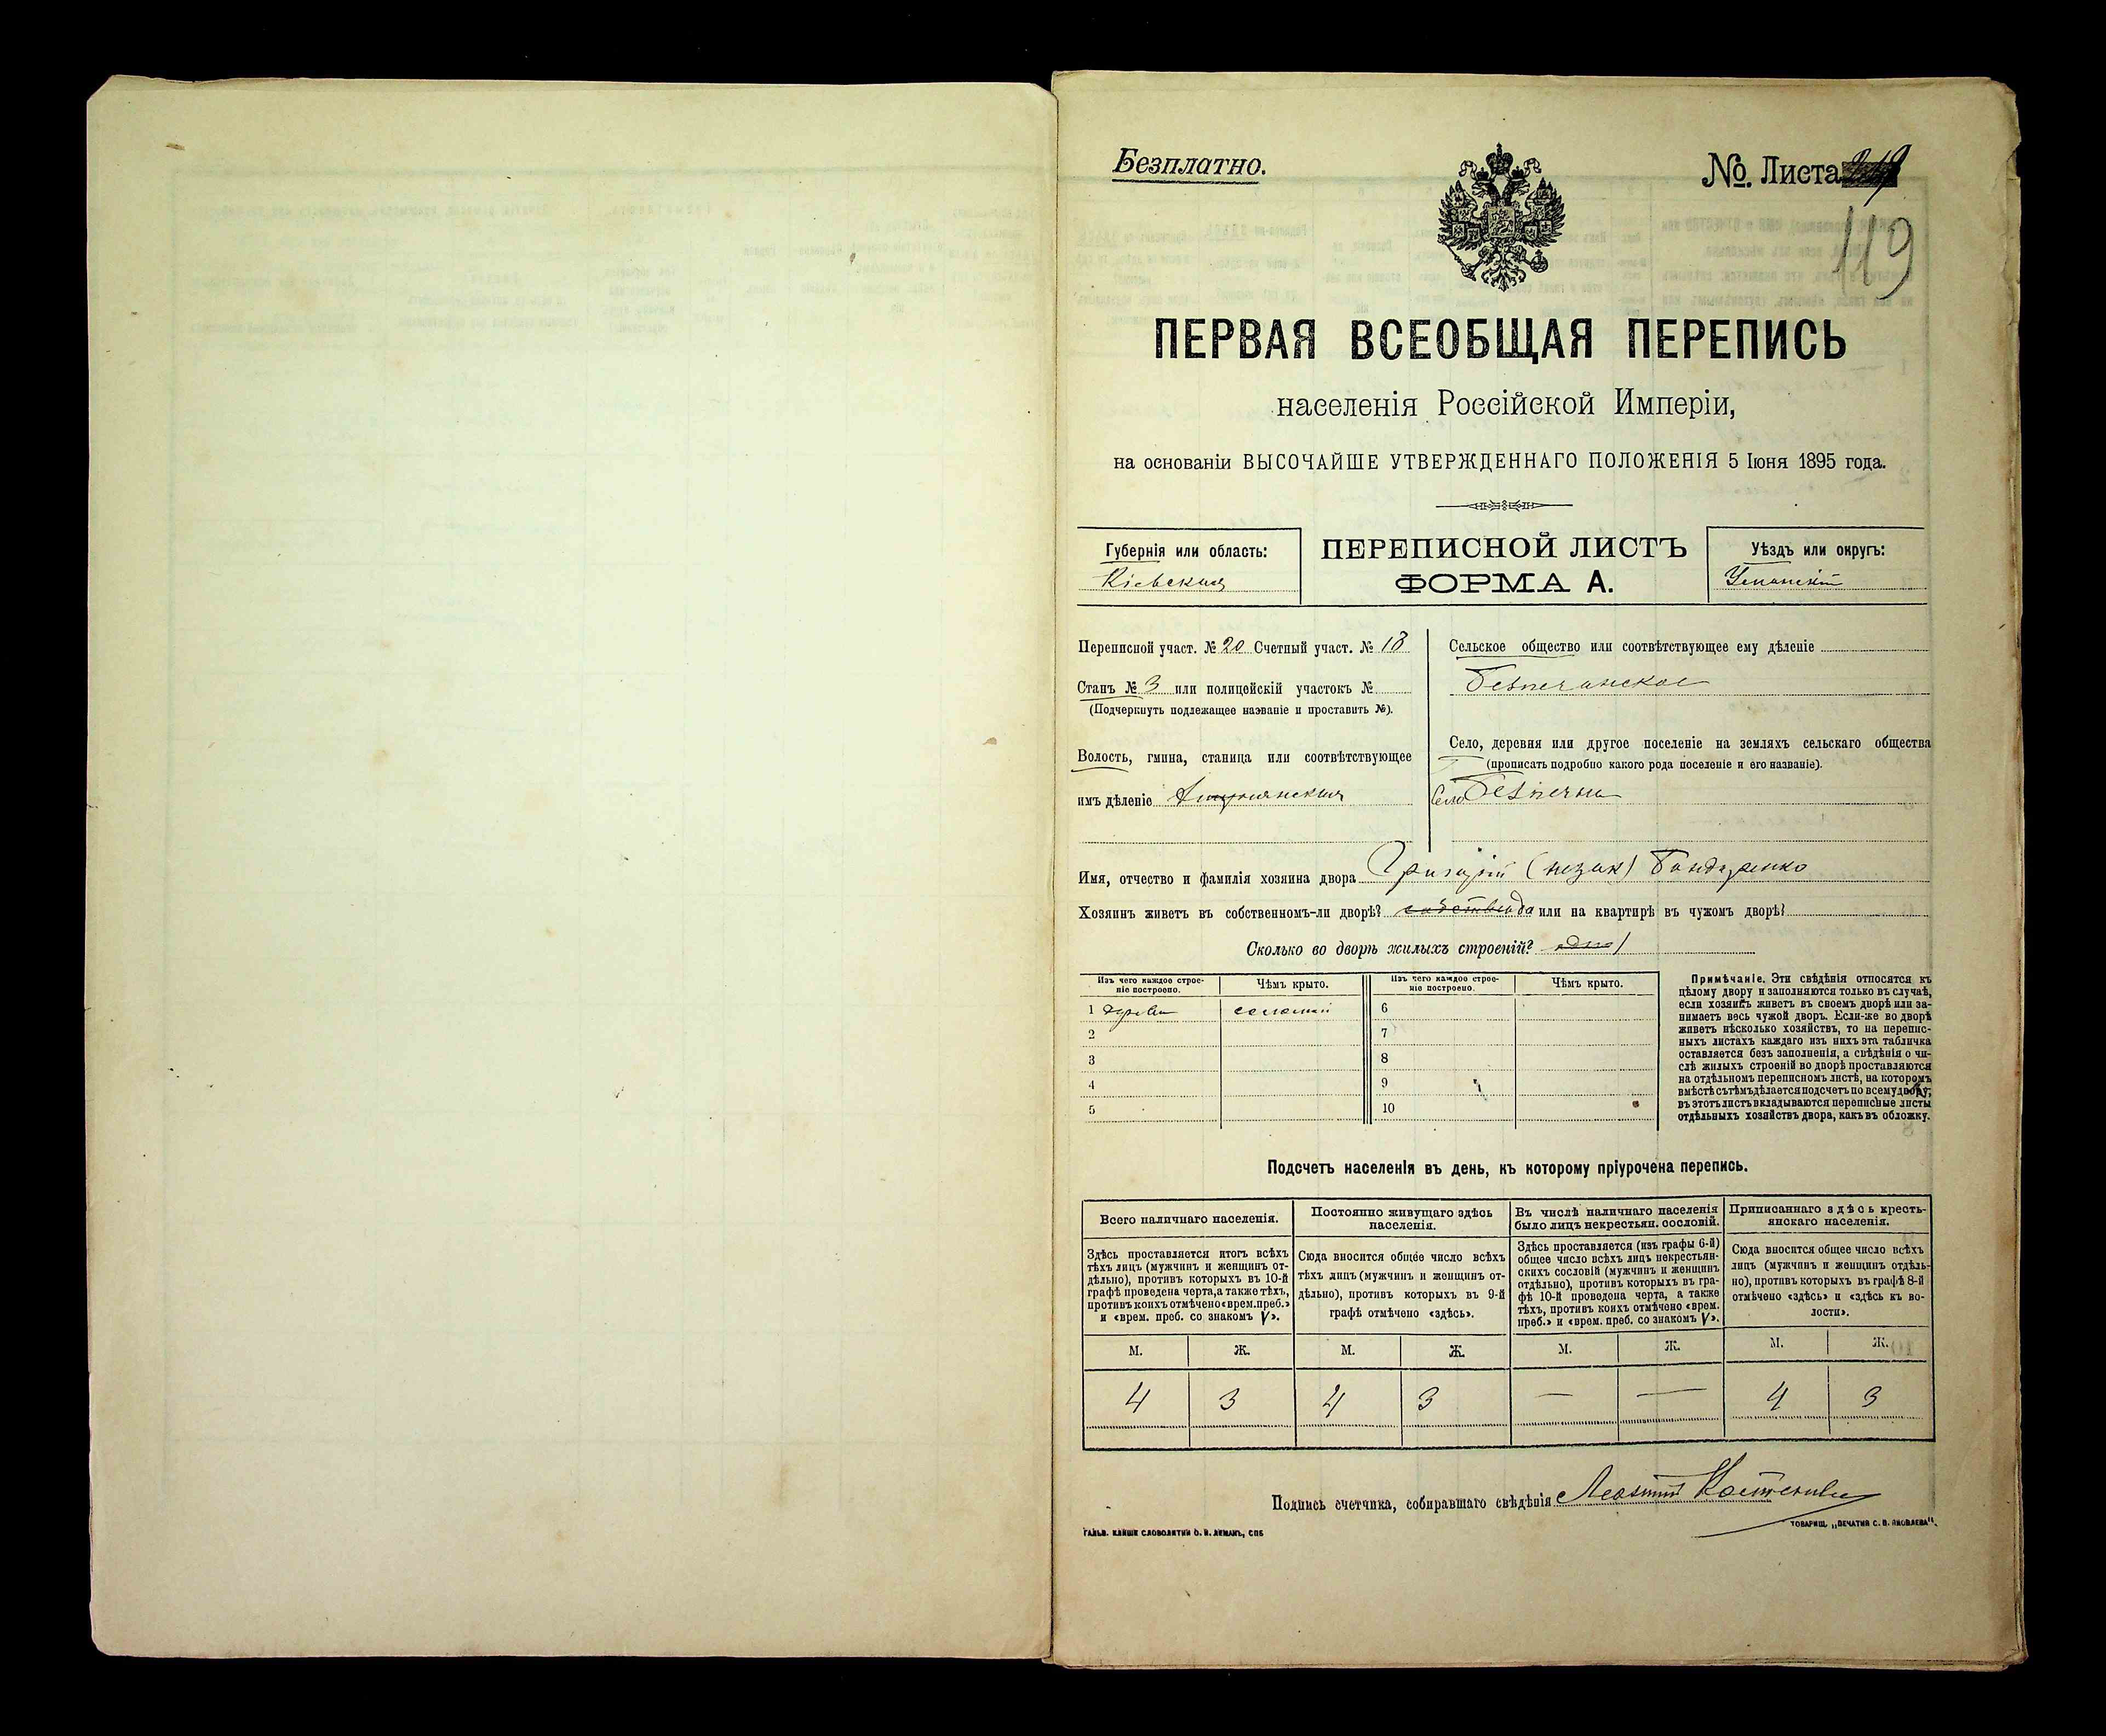 Безплатно.
№. Листа
119
ПЕРВАЯ ВСЕОБЩАЯ ПЕРЕПИСЬ
населенія Россійской Имперіи,
на основаніи ВЫСОЧАЙШЕ УТВЕРЖДЕННАГО ПОЛОЖЕНІЯ 5 Іюня 1895 года.
Губернія или область:
Кіевская
ПЕРЕПИСНОЙ ЛИСТЪ
ФОРМА А.
Уѣздъ или округъ:
Уманскій
Переписной участ. № 20 Счетный участ. № 18
Станъ № 3 или полицейскій участокъ №
(Подчеркнуть подлежащее названіе и проставить №).
Волость, гмина, станица или соотвѣтствующее
имъ дѣленіе
Сельское общество или соотвѣтствующее ему дѣленіе
Безпечанское
Село, деревня или другое поселеніе на земляхъ сельскаго общества
(прописать подробно какого рода поселеніе и его названіе).
Село Безпечна
Имя, отчество и фамилія хозяина двора Григорій (незак) Бондаренко
Хозяинъ живетъ въ собственномъ-ли дворѣ? да или на квартирѣ въ чужомъ дворѣ?
Сколько во дворѣ жилыхъ строеній? одно 1
Изъ чего каждое строе-
ніе построено.
Чѣмъ крыто.
Изъ чего каждое строе-
ніе построено.
Чѣмъ крыто.
1 дерева соломой 6
2 7
3 8
4 9
5 10
Примѣчаніе. Эти свѣдѣнія относятся къ
цѣлому двору и заполняются только въ случаѣ,
если хозяинъ живетъ въ своемъ дворѣ или за-
нимаетъ весь чужой дворъ. Если-же во дворѣ
живетъ нѣсколько хозяйствъ, то на перепис-
ныхъ листахъ каждаго изъ нихъ эта табличка
оставляется безъ заполненія, а свѣдѣнія о чи-
слѣ жилыхъ строеній во дворѣ проставляются
на отдѣльномъ переписномъ листѣ, на которомъ
вмѣстѣ съ тѣмъ дѣлается подсчетъ по всему двору;
въ этотъ листъ вкладываются переписные листы
отдѣльныхъ хозяйствъ двора, какъ въ обложку.
Подсчетъ населенія въ день, къ которому пріурочена перепись.
Всего наличнаго населенія.
Здѣсь проставляется итогъ всѣхъ
тѣхъ лицъ (мужчинъ и женщинъ от-
дѣльно), противъ которыхъ въ 10-й
графѣ проведена черта, а также тѣхъ,
противъ коихъ отмѣчено «врем. преб.»
и «врем. преб. со знакомъ V».
Постоянно живущаго здѣсь
населенія.
Сюда вносится общее число всѣхъ
тѣхъ лицъ (мужчинъ и женщинъ от-
дѣльно), противъ которыхъ въ 9-й
графѣ отмѣчено «здѣсь».
Въ числѣ наличнаго населенія
было лицъ некрестьян. сословій.
Здѣсь проставляется (изъ графы 6-й)
общее число всѣхъ лицъ некрестьян-
скихъ сословій (мужчинъ и женщинъ
отдѣльно), противъ которыхъ въ гра-
фѣ 10-й проведена черта, а также
тѣхъ, противъ коихъ отмѣчено «врем.
преб.» и «врем. преб. со знакомъ V».
Приписаннаго здѣсь кресть-
янскаго населенія.
Сюда вносится общее число всѣхъ
лицъ (мужчинъ и женщинъ отдѣль-
но), противъ которыхъ въ графѣ 8-й
отмѣчено «здѣсь» и «здѣсь къ во-
лости».
М. Ж. М. Ж. М. Ж. М. Ж.
4 3 4 3 — — 4 3
Подпись счетчика, собиравшаго свѣдѣнія
ГАЛЬВ. КЛИШЕ СЛОВОЛИТНИ О. И. ЛЕМАНЪ, СПБ
ТОВАРИЩ. „ПЕЧАТНЯ С. П. ЯКОВЛЕВА“.